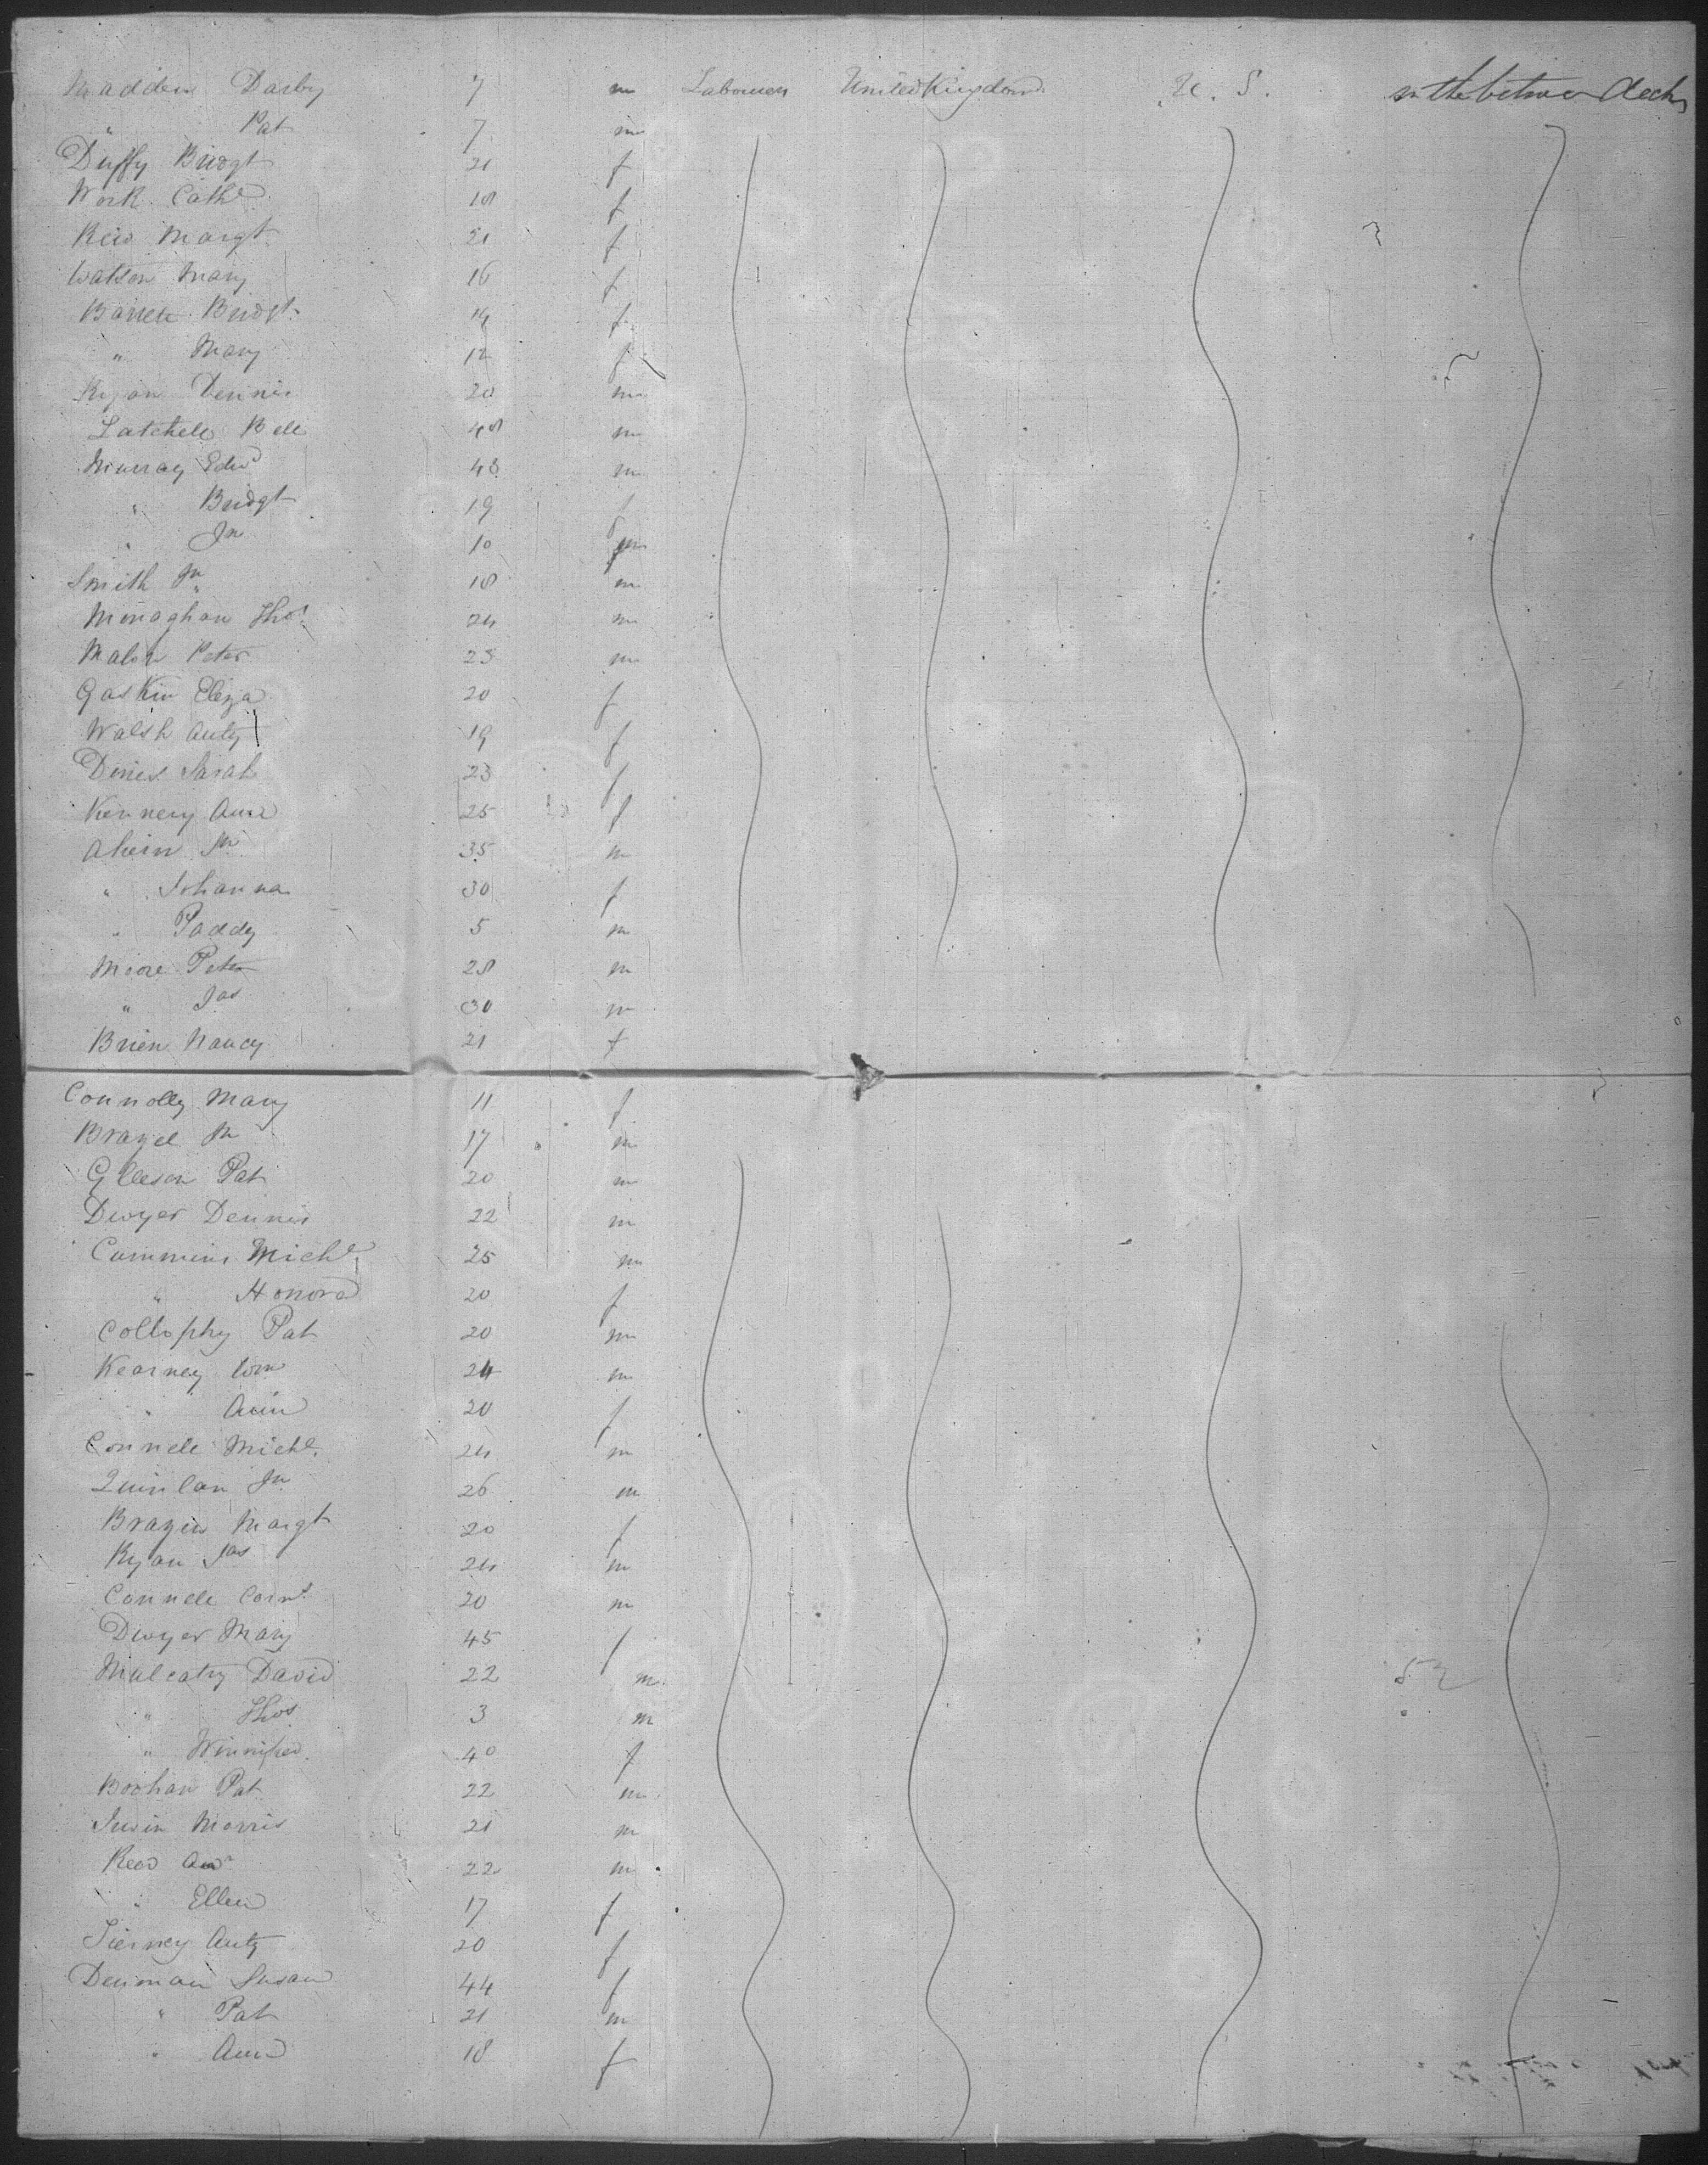 Madden Darby 7 m Labourers United Kingdom U. S. in the between decks
" Pat 7 m
Duffy Bridgt 21 f
Work Cathe 18 f
Reid Margt 21 f
Watson Mary 16 f
Barrett Bridgt 14 f
" Mary 12 f
Ryan Dennis 20 m
Latchell Bell 48 m
Murray Edwd 43 m
" Bridgt 19 f
" Jn 10 m
Smith Jn 18 m
Monaghan Thos 24 m
Malon Peter 25 m
Gaskin Eliza 20 f
Walsh Anty 19 f
Sarah 23 f
Kennery Ann 25 f
Ahern Jn 35 m
" Johanna 30 f
" Paddy 5 m
Moore Peter 28 m
" Jas 30 m
Brien Nancy 21 f
Connolly Mary 11 f
Brazel Jn 17 m
Gleeson Pat 20 m
Dwyer Dennis 22 m
Cummins Michl 25 m
" Honora 20 f
Collophy Pat 20 m
Kearney Wm 24 m
" Ann 20 f
Connell Michl 24 m
Quinlan Jn 26 m
Margt 20 f
Ryan Jas 24 m
Connell Corns 20 m
Dwyer Mary 45 f
Mulcahy David 22 m
" Thos 3 m
" Winnifred 40 f
Boohan Pat 22 m
Irwin Morris 21 m
Reid And 22 m
" Ellen 17 f
Tierney Anty 20 f
Denman Susan 44 f
" Pat 21 m
" Ann 18 f